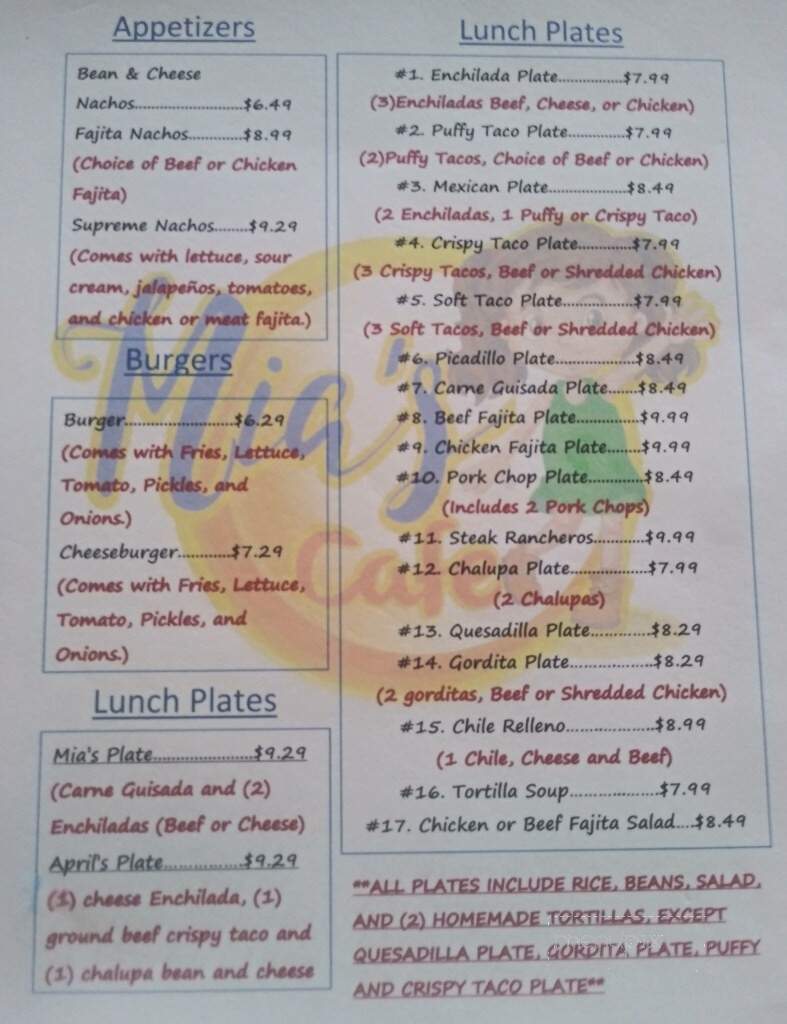 Appetizers
Bean & Cheese
Nachos..........................$6.49
Fajita Nachos............$8.99
(Choice of Beef or Chicken
Fajita)
Supreme Nachos........$9.29
(Comes with lettuce, sour
cream, jalapeños, tomatoes,
and chicken or meat fajita.)
Burgers
Burger..........................$6.29
(Comes with Fries, Lettuce,
Tomato, Pickles, and
Onions.)
Cheeseburger............$7.29
(Comes with Fries, Lettuce,
Tomato, Pickles, and
Onions.)
Lunch Plates
Mia's Plate........................$9.29
(Carne Guisada and (2)
Enchiladas (Beef or Cheese)
April's Plate...................$9.29
(1) cheese Enchilada, (1)
ground beef crispy taco and
(1) chalupa bean and cheese
Lunch Plates
#1. Enchilada Plate...............$7.99
(3)Enchiladas Beef, Cheese, or Chicken)
#2. Puffy Taco Plate.............$7.99
(2)Puffy Tacos, Choice of Beef or Chicken)
#3. Mexican Plate..................$8.49
(2 Enchiladas, 1 Puffy or Crispy Taco)
#4. Crispy Taco Plate............$7.99
(3 Crispy Tacos, Beef or Shredded Chicken)
#5. Soft Taco Plate................$7.99
(3 Soft Tacos, Beef or Shredded Chicken)
#6. Picadillo Plate..................$8.49
#7. Carne Guisada Plate.......$8.49
#8. Beef Fajita Plate..............$9.99
#9. Chicken Fajita Plate........$9.99
#10. Pork Chop Plate.............$8.49
(Includes 2 Pork Chops)
#11. Steak Rancheros............$9.99
#12. Chalupa Plate..................$7.99
(2 Chalupas)
#13. Quesadilla Plate..............$8.29
#14. Gordita Plate...................$8.29
(2 gorditas, Beef or Shredded Chicken)
#15. Chile Relleno....................$8.99
(1 Chile, Cheese and Beef)
#16. Tortilla Soup....................$7.99
#17. Chicken or Beef Fajita Salad....$8.49
**ALL PLATES INCLUDE RICE, BEANS, SALAD,
AND (2) HOMEMADE TORTILLAS, EXCEPT
QUESADILLA PLATE, GORDITA PLATE, PUFFY
AND CRISPY TACO PLATE**
Mia's
Cafe